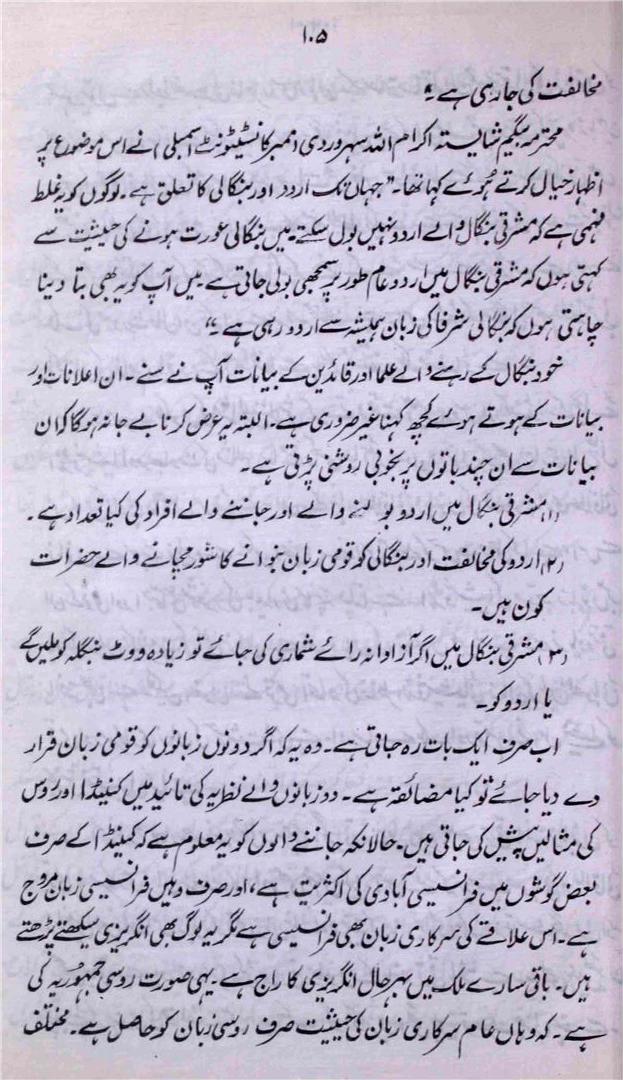 ۱۰۵
مخالفت کی جا رہی ہے۔"
محترمہ بیگم شایستہ اکرام اللہ سہروردی (ممبر کانسٹیٹونٹ اسمبلی) نے اس موضوع پر
اظہار خیال کرتے ہُوئے کہا تھا۔" جہاں تک اردو اور بنگالی کا تعلق ہے۔ لوگوں کو یہ غلط
فہمی ہے کہ مشرقی بنگال والے اردو نہیں بول سکتے۔ میں بنگالی عورت ہونے کی حیثیت سے
کہتی ہوں کہ مشرقی بنگال میں اردو عام طور پر سمجھی بولی جاتی ہے میں آپ کو یہ بھی بتا دینا
چاہتی ہوں کہ بنگالی شرفا کی زبان ہمیشہ سے اردو رہی ہے۔"
خود بنگال کے رہنے والے علما اور قائدین کے بیانات آپ نے سنے۔ ان اعلانات اور
بیانات کے ہوتے ہوئے کچھ کہنا غیر ضروری ہے۔ البتہ یہ عرض کرنا بے جا نہ ہوگا کہ ان
بیانات سے ان چند باتوں پر بخوبی روشنی پڑتی ہے۔
(۱) مشرقی بنگال میں اردو بولنے والے اور جاننے والے افراد کی کیا تعداد ہے۔
(۲) اردو کی مخالفت اور بنگالی کو قومی زبان بنوانے کا شور مچانے والے حضرات
کون ہیں۔
(۳) مشرقی بنگال میں اگر آزادانہ رائے شماری کی جائے تو زیادہ ووٹ بنگلہ کو ملیں گے
یا اردو کو۔
اب صرف ایک بات رہ جاتی ہے۔ وہ یہ کہ اگر دونوں زبانوں کو قومی زبان قرار
دے دیا جائے تو کیا مضائقہ ہے۔ دو زبانوں والے نظریہ کی تائید میں کنیڈا اور روس
کی مثالیں پیش کی جاتی ہیں۔ حالانکہ جاننے والوں کو یہ معلوم ہے کہ کنیڈا کے صرف
بعض گوشوں میں فرانسیسی آبادی کی اکثریت ہے، اور صرف وہیں فرانسیسی زبان مروج
ہے۔ اس علاقے کی سرکاری زبان بھی فرانسیسی ہے مگر یہ لوگ بھی انگریزی سیکھتے پڑھتے
ہیں۔ باقی سارے ملک میں بہر حال انگریزی کا راج ہے۔ یہی صورت روسی جمہوریہ کی
ہے۔ کہ وہاں عام سرکاری زبان کی حیثیت صرف روسی زبان کو حاصل ہے۔ مختلف